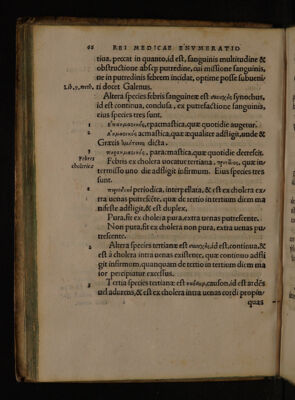 66 REI MEDICAE ENVMERATIO
tiua, peccat in quanto, id est, sanguinis multitudine &
obstructione absq; putredine, cui missione sanguinis,
ne in putredinis febrem incidat, optime posse subueni-
Lib, 9, meth. ri docet Galenus.
Altera species febris sanguineæ est συνοχὴς synochus,
id est continua, conclusa, ex putrefactione sanguinis,
eius species tres sunt.
1 ἐπακμαστικὸς, epacmastica, quæ quotidie augetur.
2 ἀκμαστικὸς acmastica, quæ æqualiter adfligit, unde &
Græcis ὁμότονος dicta.
3 παρακμαστικὸς, paracmastica, quæ quotidie decrescit.
Febris cholerica Febris ex cholera uocatur tertiana, τριταῖος, quæ in-
termisso uno die adfligit infirmum. Eius species tres
sunt.
1 περιοδικὸς periodica, interpellata, & est ex cholera ex-
tra uenas putrescēte, quæ de tertio in tertium diem ma
nifeste adfligit, & est duplex.
Pura, fit ex cholera pura, extra uenas putrescente.
Non pura, fit ex cholera non pura, extra uenas pu-
trescente.
2 Altera species tertianæ est συνεχὴς, id est, continua, &
est à cholera intra uenas existente, quæ continuo adfli
git infirmum, quanquam de tertio in tertium diem ma
ior percipiatur excessus.
3 Tertia species tertianæ: est καῦσος, causon, id est ardēs
uel adurens, & est ex cholera intra uenas cordi propin-
quas